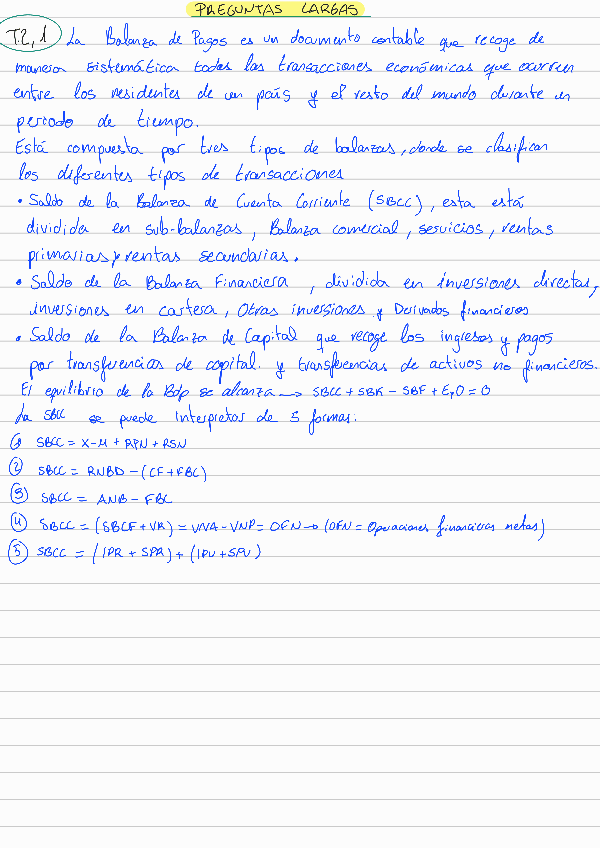 PREGUNTAS LARGAS
T2,1 La Balanza de Pagos es un documento contable que recoge de
manera sistemática todas las transacciones económicas que ocurren
entre los residentes de un país y el resto del mundo durante un
periodo de tiempo.
Está compuesta por tres tipos de balanzas, donde se clasifican
los diferentes tipos de transacciones
• Saldo de la Balanza de Cuenta Corriente (SBCC), esta está
dividida en sub-balanzas, Balanza comercial, servicios, rentas
primarias y rentas secundarias.
• Saldo de la Balanza Financiera, dividida en inversiones directas,
inversiones en cartera, Otras inversiones y Derivados financieros
• Saldo de la Balanza de Capital que recoge los ingresos y pagos
por transferencias de capital. y transferencias de activos no financieros.
El equilibrio de la Bdp se alcanza → SBCC + SBK - SBF + E y O = 0
La SBCC se puede interpretar de 5 formas:
① SBCC = X-M + RPN + RSN
② SBCC = RNBD - (CF + FBC)
③ SBCC = ANB - FBC
④ SBCC = (SBCF + VR) = VNA - VNP = OFN → (OFN = Operaciones financieras netas)
⑤ SBCC = (IPR + SPR) + (IPU + SPU)